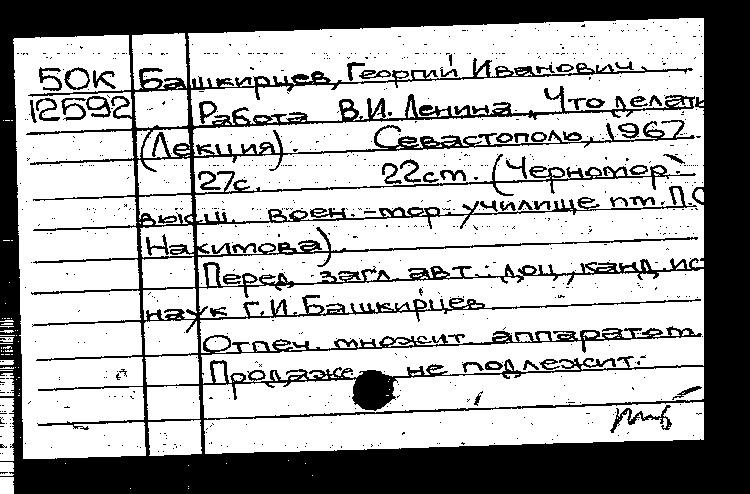 50К Башкирцев, Георгий Иванович.
12592 Работа В.И. Ленина „Что делать
(Лекция). Севастополь, 1967.
27с. 22см. (Черномор.
высш. воен.-мор. училище им. П.С
Нахимова).
Перед загл. авт.: доц., канд. ис
наук Г.И. Башкирцев
Отпеч. множит. аппаратом.
Продаже не подлежит.